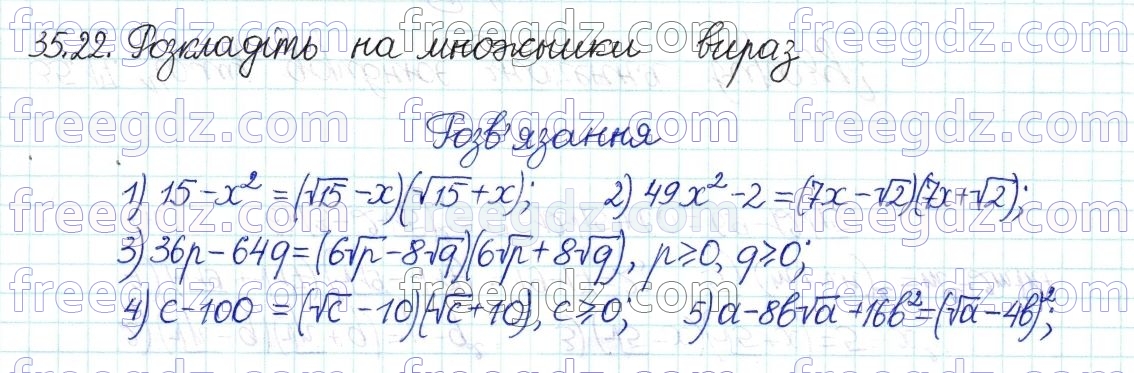 35.22. Розкладіть на множники вираз
Розв'язання
1) 15 - x² = (√15 - x)(√15 + x); 2) 49x² - 2 = (7x - √2)(7x + √2);
3) 36p - 64q = (6√p - 8√q)(6√p + 8√q), p ≥ 0, q ≥ 0;
4) c - 100 = (√c - 10)(√c + 10), c ≥ 0; 5) a - 8b√a + 16b² = (√a - 4b)²;
freegdz.com freegdz.com freegdz.com
freegdz.com freegdz.com freegdz.com
freegdz.com freegdz.com freegdz.com
freegdz.com freegdz.com freegdz.com
freegdz.com freegdz.com freegdz.com